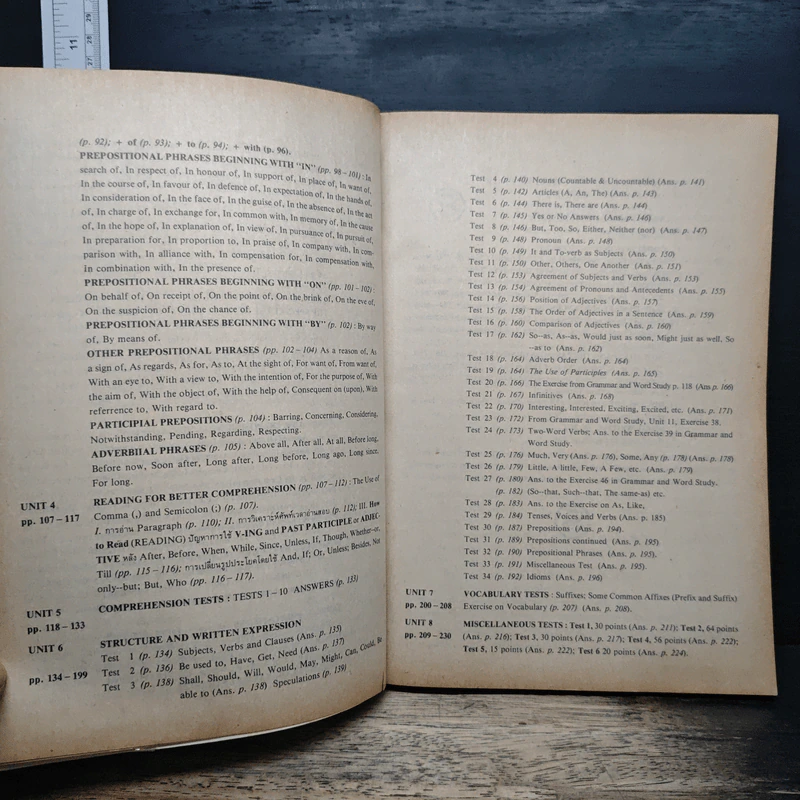 11
27 28 29
(p. 92); + of (p. 93); + to (p. 94); + with (p. 96).
PREPOSITIONAL PHRASES BEGINNING WITH "IN" (pp. 98–101) : In
search of, In respect of, In honour of, In support of, In place of, In want of,
In the course of, In favour of, In defence of, In expectation of, In the hands of,
In consideration of, In the face of, In the guise of, In the absence of, In the act
of, In charge of, In exchange for, In common with, In memory of, In the cause
of, In the hope of, In explanation of, In view of, In pursuance of, In pursuit of,
In preparation for, In proportion to, In praise of, In company with, In com-
parison with, In alliance with, In compensation for, In compensation with,
In combination with, In the presence of.
PREPOSITIONAL PHRASES BEGINNING WITH "ON" (pp. 101–102) :
On behalf of, On receipt of, On the point of, On the brink of, On the eve of,
On the suspicion of, On the chance of.
PREPOSITIONAL PHRASES BEGINNING WITH "BY" (p. 102) : By way
of, By means of.
OTHER PREPOSITIONAL PHRASES (pp. 102–104) As a reason of, As
a sign of, As regards, As for, As to, At the sight of, For want of, From want of,
With an eye to, With a view to, With the intention of, For the purpose of, With
the aim of, With the object of, With the help of, Consequent on (upon), With
referrence to, With regard to.
PARTICIPIAL PREPOSITIONS (p. 104) : Barring, Concerning, Considering,
Notwithstanding, Pending, Regarding, Respecting.
ADVERBIIAL PHRASES (p. 105) : Above all, After all, At all, Before long,
Before now, Soon after, Long after, Long before, Long ago, Long since,
For long.
UNIT 4 READING FOR BETTER COMPREHENSION (pp. 107–112) : The Use of
pp. 107–117 Comma (,) and Semicolon (;) (p. 107).
I. การอ่าน Paragraph (p. 110); II. การวิเคราะห์ศัพท์เวลาอ่านสอบ (p. 112); III. How
to Read (READING) ปัญหาการใช้ V-ING and PAST PARTICIPLE or ADJEC-
TIVE หลัง After, Before, When, While, Since, Unless, If, Though, Whether–or,
Till (pp. 115–116); การเปลี่ยนรูปประโยคโดยใช้ And, If; Or, Unless; Besides, Not
only--but; But, Who (pp. 116–117).
UNIT 5 COMPREHENSION TESTS : TESTS 1–10 ANSWERS (p. 133)
pp. 118–133
UNIT 6 STRUCTURE AND WRITTEN EXPRESSION
Test 1 (p. 134) Subjects, Verbs and Clauses (Ans. p. 135)
pp. 134–199 Test 2 (p. 136) Be used to, Have, Get, Need (Ans. p. 137)
Test 3 (p. 138) Shall, Should, Will, Would, May, Might, Can, Could, Be
able to (Ans. p. 138) Speculations (p. 139)
Test 4 (p. 140) Nouns (Countable & Uncountable) (Ans. p. 141)
Test 5 (p. 142) Articles (A, An, The) (Ans. p. 143)
Test 6 (p. 144) There is, There are (Ans. p. 144)
Test 7 (p. 145) Yes or No Answers (Ans. p. 146)
Test 8 (p. 146) But, Too, So, Either, Neither (nor) (Ans. p. 147)
Test 9 (p. 148) Pronoun (Ans. p. 148)
Test 10 (p. 149) It and To-verb as Subjects (Ans. p. 150)
Test 11 (p. 150) Other, Others, One Another (Ans. p. 151)
Test 12 (p. 153) Agreement of Subjects and Verbs (Ans. p. 153)
Test 13 (p. 154) Agreement of Pronouns and Antecedents (Ans. p. 155)
Test 14 (p. 156) Potition of Adjectives (Ans. p. 157)
Test 15 (p. 158) The Order of Adjectives in a Sentence (Ans. p. 159)
Test 16 (p. 160) Comparison of Adjectives (Ans. p. 160)
Test 17 (p. 162) So--as, As--as, Would just as soon, Might just as well, So
--as to (Ans. p. 162)
Test 18 (p. 164) Adverb Order (Ans. p. 164)
Test 19 (p. 164) The Use of Participles (Ans. p. 165)
Test 20 (p. 166) The Exercise from Grammar and Word Study p. 118 (Ans p. 166)
Test 21 (p. 167) Infinitives (Ans. p. 168)
Test 22 (p. 170) Interesting, Interested, Exciting, Excited, etc. (Ans. p. 171)
Test 23 (p. 172) From Grammar and Word Study, Unit 11, Exercise 38.
Test 24 (p. 173) Two-Word Verbs; Ans. to the Exercise 39 in Grammar and
Word Study.
Test 25 (p. 176) Much, Very (Ans. p. 176), Some, Any (p. 178) (Ans. p. 178)
Test 26 (p. 179) Little, A little, Few, A Few, etc. (Ans. p. 179)
Test 27 (p. 180) Ans. to the Exercise 46 in Grammar and Word Study.
(p. 182) (So--that, Such--that, The same-as) etc.
Test 28 (p. 183) Ans. to the Exercise on As, Like,
Test 29 (p. 184) Tenses, Voices and Verbs (Ans. p. 185)
Test 30 (p. 187) Prepositions (Ans. p. 194).
Test 31 (p. 189) Prepositions continued (Ans. p. 195).
Test 32 (p. 190) Prepositional Phrases (Ans. p. 195),
Test 33 (p. 191) Miscellaneous Test (Ans. p. 195).
Test 34 (p. 192) Idioms (Ans. p. 196)
UNIT 7 VOCABULARY TESTS : Suffixes; Some Common Affixes (Prefix and Suffix)
pp. 200–208 Exercise on Vocabulary (p. 207) (Ans. p. 208).
UNIT 8 MISCELLANEOUS TESTS : Test 1, 30 points (Ans. p. 211); Test 2, 64 points
pp. 209–230 (Ans. p. 216); Test 3, 30 points (Ans. p. 217); Test 4, 56 points (Ans. p. 222);
Test 5, 15 points (Ans. p. 222); Test 6 20 points (Ans. p. 224).